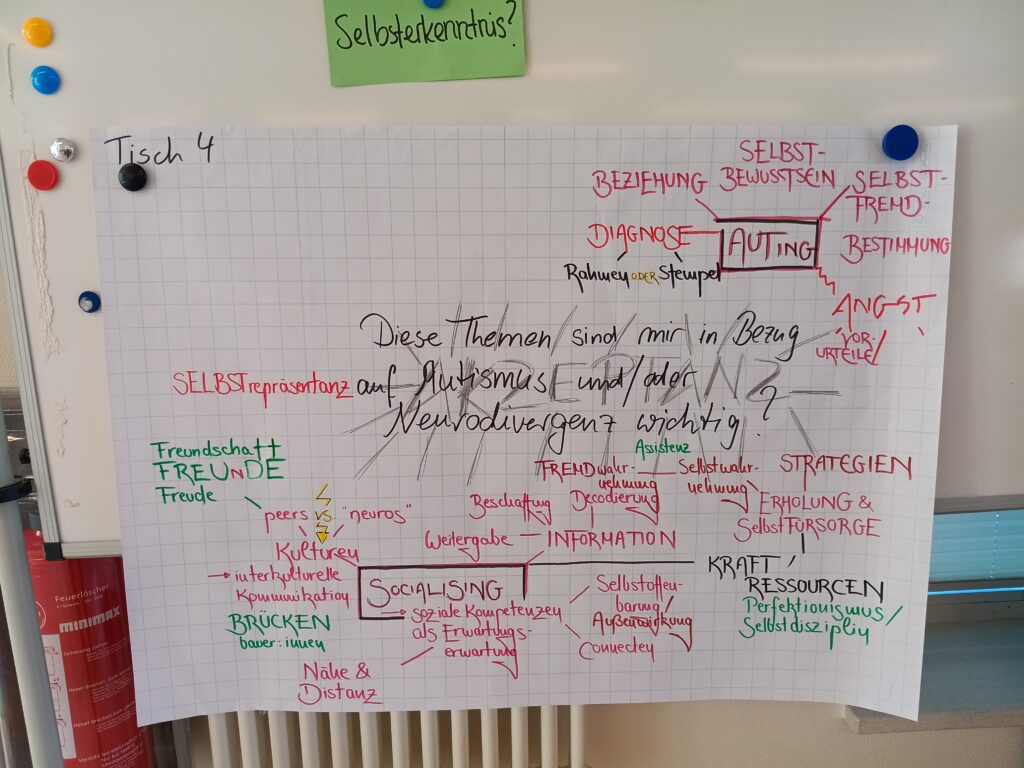 Selbsterkenntnis?
Tisch 4
SELBST-
BEWUSSTSEIN
BEZIEHUNG
SELBST-
FREMD-
BESTIMMUNG
DIAGNOSE
AUTING
Rahmen ODER Stempel
ANGST
VOR-
URTEILE
AKZEPTANZ
Diese Themen sind mir in Bezug
auf Autismus und/oder
Neurodivergenz wichtig?
SELBSTrepräsentanz
Freundschaft
FREUNDE
Freude
peers vs. "neuros"
Kulturen
→ interkulturelle
Kommunikation
BRÜCKEN
bauer:innen
Assistenz
FREMDwahr-
nehmung
Selbstwahr-
nehmung
Beschaffung
Decodierung
Weitergabe
INFORMATION
STRATEGIEN
ERHOLUNG &
SelbstFÜRSORGE
KRAFT
RESSOURCEN
Perfektionismus/
Selbstdisziplin
SOCIALISING
→ soziale Kompetenzen
als Erwartungs-
erwartung
Nähe &
Distanz
Selbstoffen-
barung/
Außenwirkung
Feuerlöscher
MINIMAX